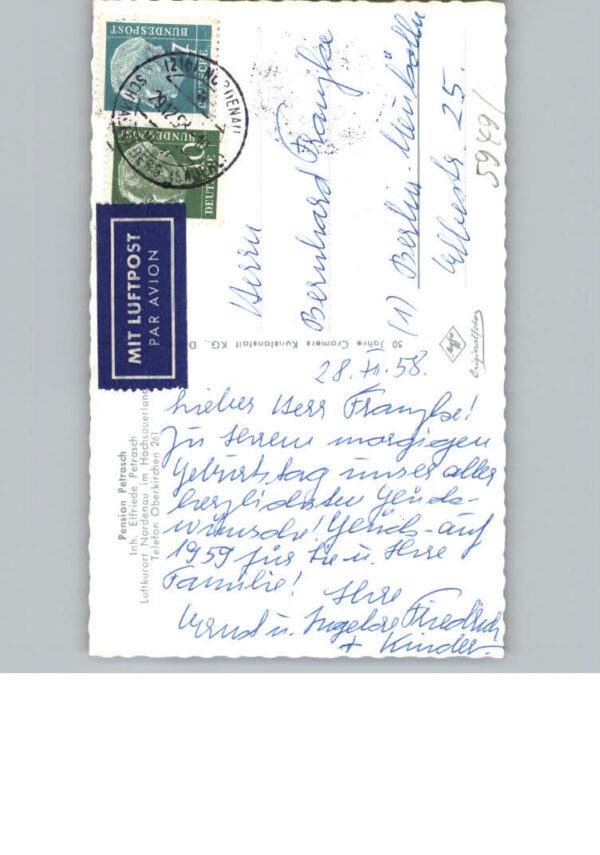 28. XII. 58.
Lieber Herr Franzke!
Zu Ihrem morgigen
Geburtstag unser aller
herzlichsten Glück-
wünsche! Glück-auf
1959 für Sie u. Ihre
Familie!
Ihre
Ernst u. Ingelore Friedrich
+ Kinder.
Herrn
Bernhard Franzke
(1) Berlin-Neukölln
Elbestr. 25.
5949/
Pension Petrasch
Inh. Elfriede Petrasch
Luftkurort Nordenau im Hochsauerland
Telefon Oberkirchen 261
50 Jahre Cramers Kunstanstalt KG., D
Agfa
Originalfoto
MIT LUFTPOST
PAR AVION
7
DEUTSCHE
BUNDESPOST
10
DEUTSCHE
BUNDESPOST